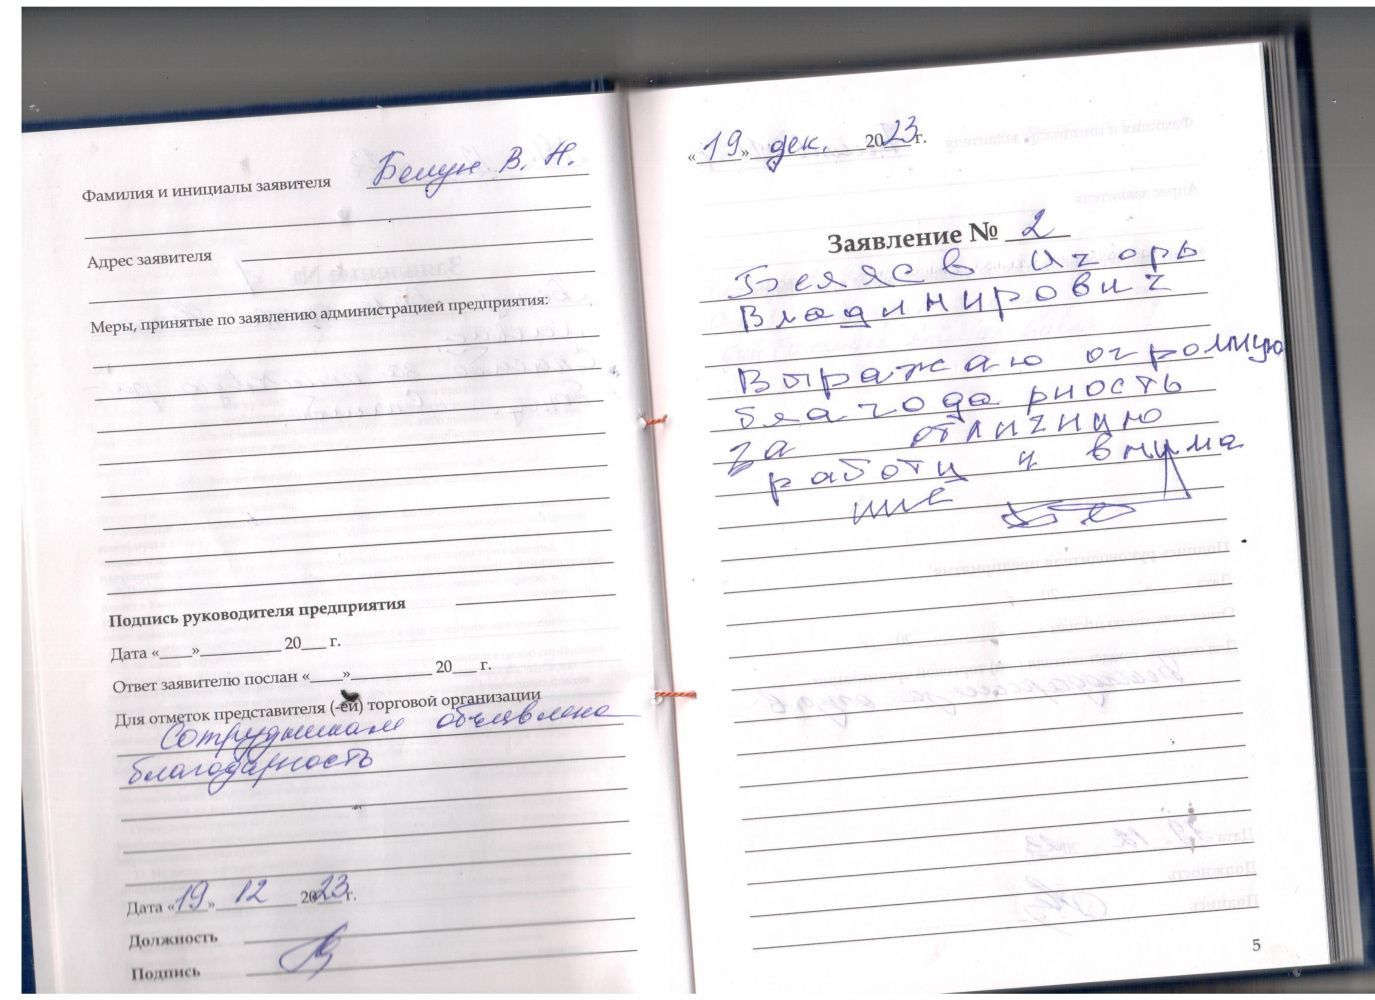 Фамилия и инициалы заявителя Белун В. Н.
Адрес заявителя
Меры, принятые по заявлению администрацией предприятия:
Подпись руководителя предприятия
Дата «____»__________ 20___ г.
Ответ заявителю послан «____»__________ 20___ г.
Для отметок представителя (-ей) торговой организации
Сотрудникам объявлена
благодарность
Дата «19» 12 2023 г.
Должность
Подпись
«19» дек. 2023 г.
Заявление № 2
Игорь
Владимирович
Выражаю огромную
благодарность
за отличную
работу и внима
ние
5